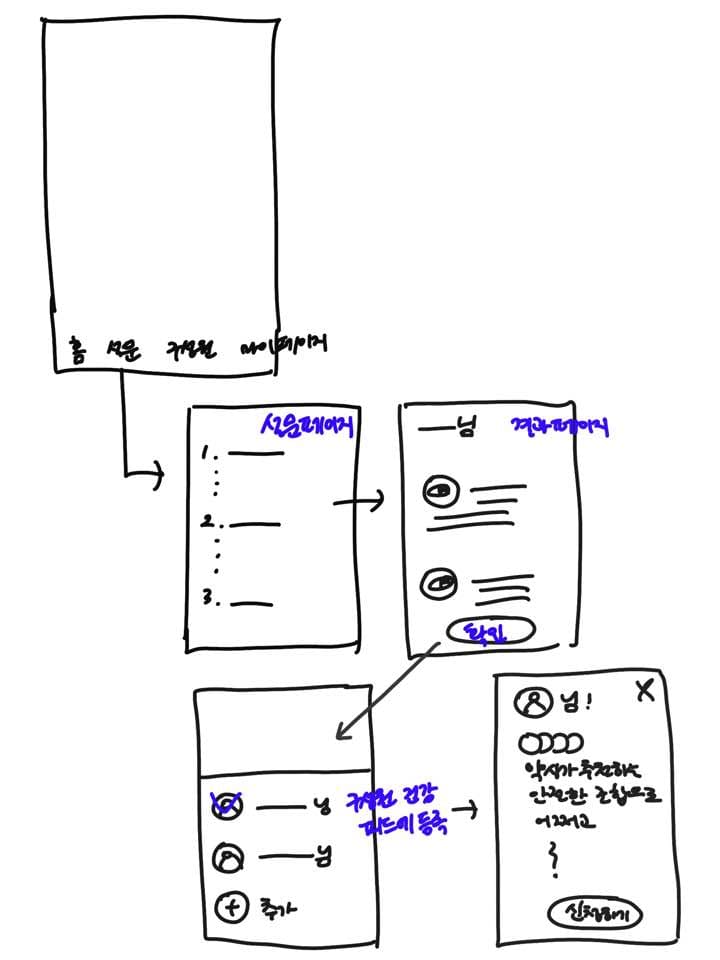 홈 설문 구성원 마이페이지
설문페이지
1.
2.
3.
님 결과페이지
확인
님
님
추가
구성원 건강
피드에 등록
님! X
약사가 추천하는
안전한 조합으로
어쩌고
신청하기